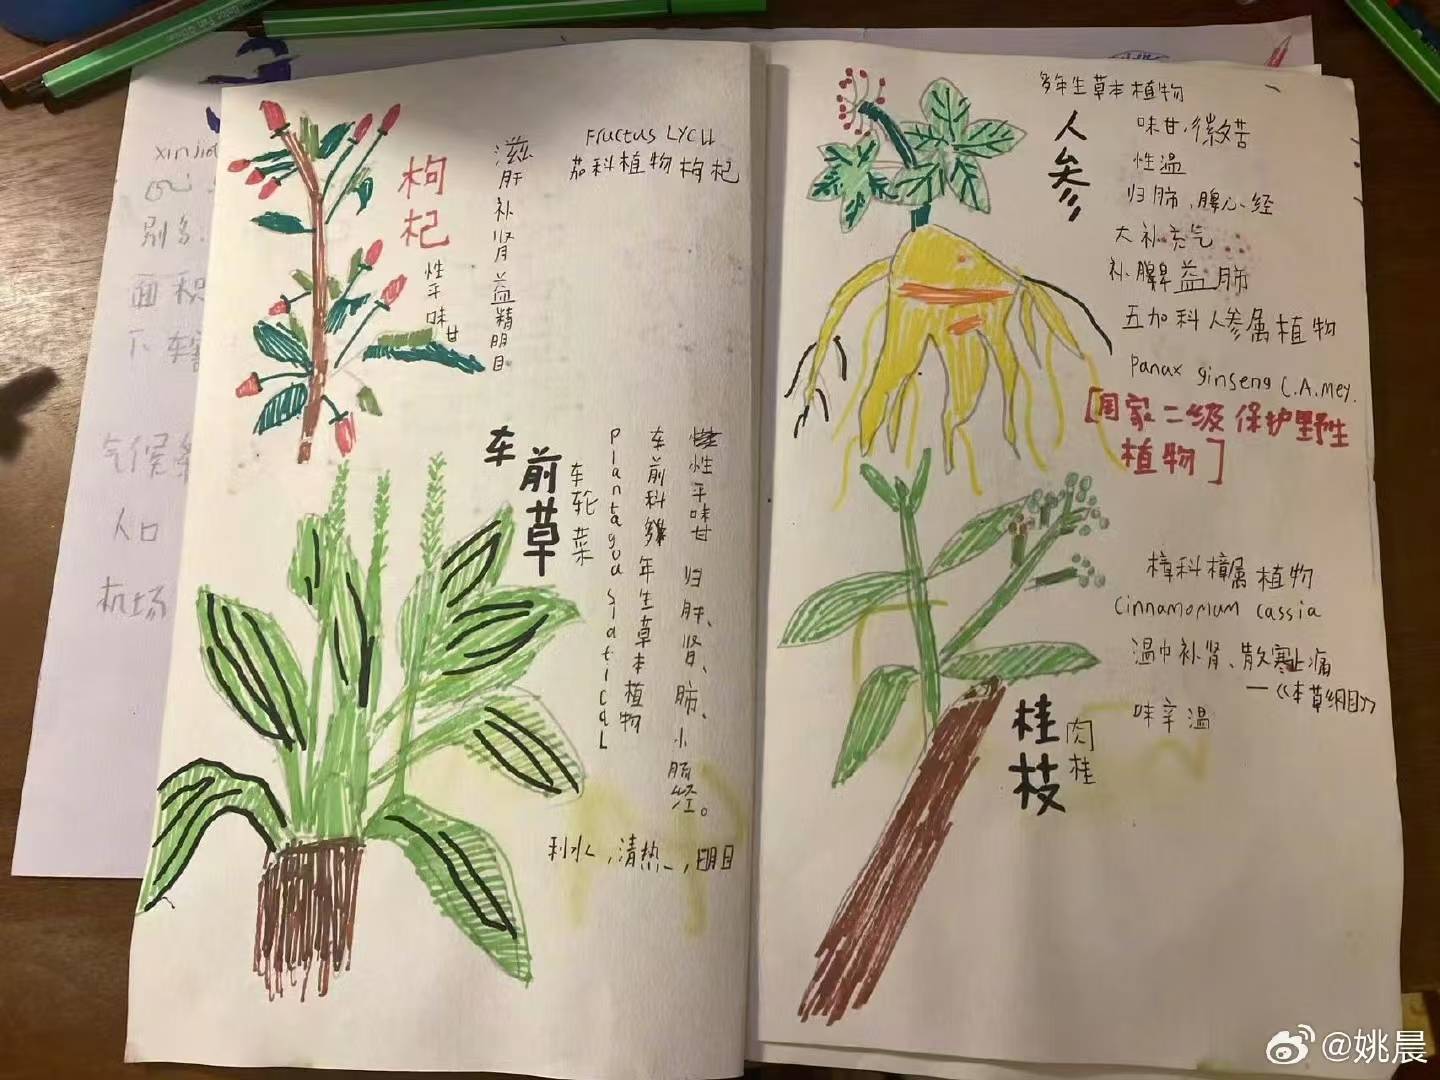 枸杞
性平味甘
滋肝补肾益精明目
Fructus LYCLL
茄科植物枸杞
车前草
车轮菜
Plantagua SiaticaL
车前科多年生草本植物
性平味甘 归肝、肾、肺、小肠经。
利水,清热,明目
多年生草本植物
人参
味甘,微苦
性温
归肺、脾心经
大补元气
补脾益肺
五加科人参属植物
Panax ginseng C.A.Mey.
[国家二级保护野生
植物]
樟科樟属植物
Cinnamomum cassia
温中补肾、散寒止痛
—《本草纲目》
味辛温
桂枝
肉桂
xinji
别多.
面积
下车
气候
人口
机场
@姚晨